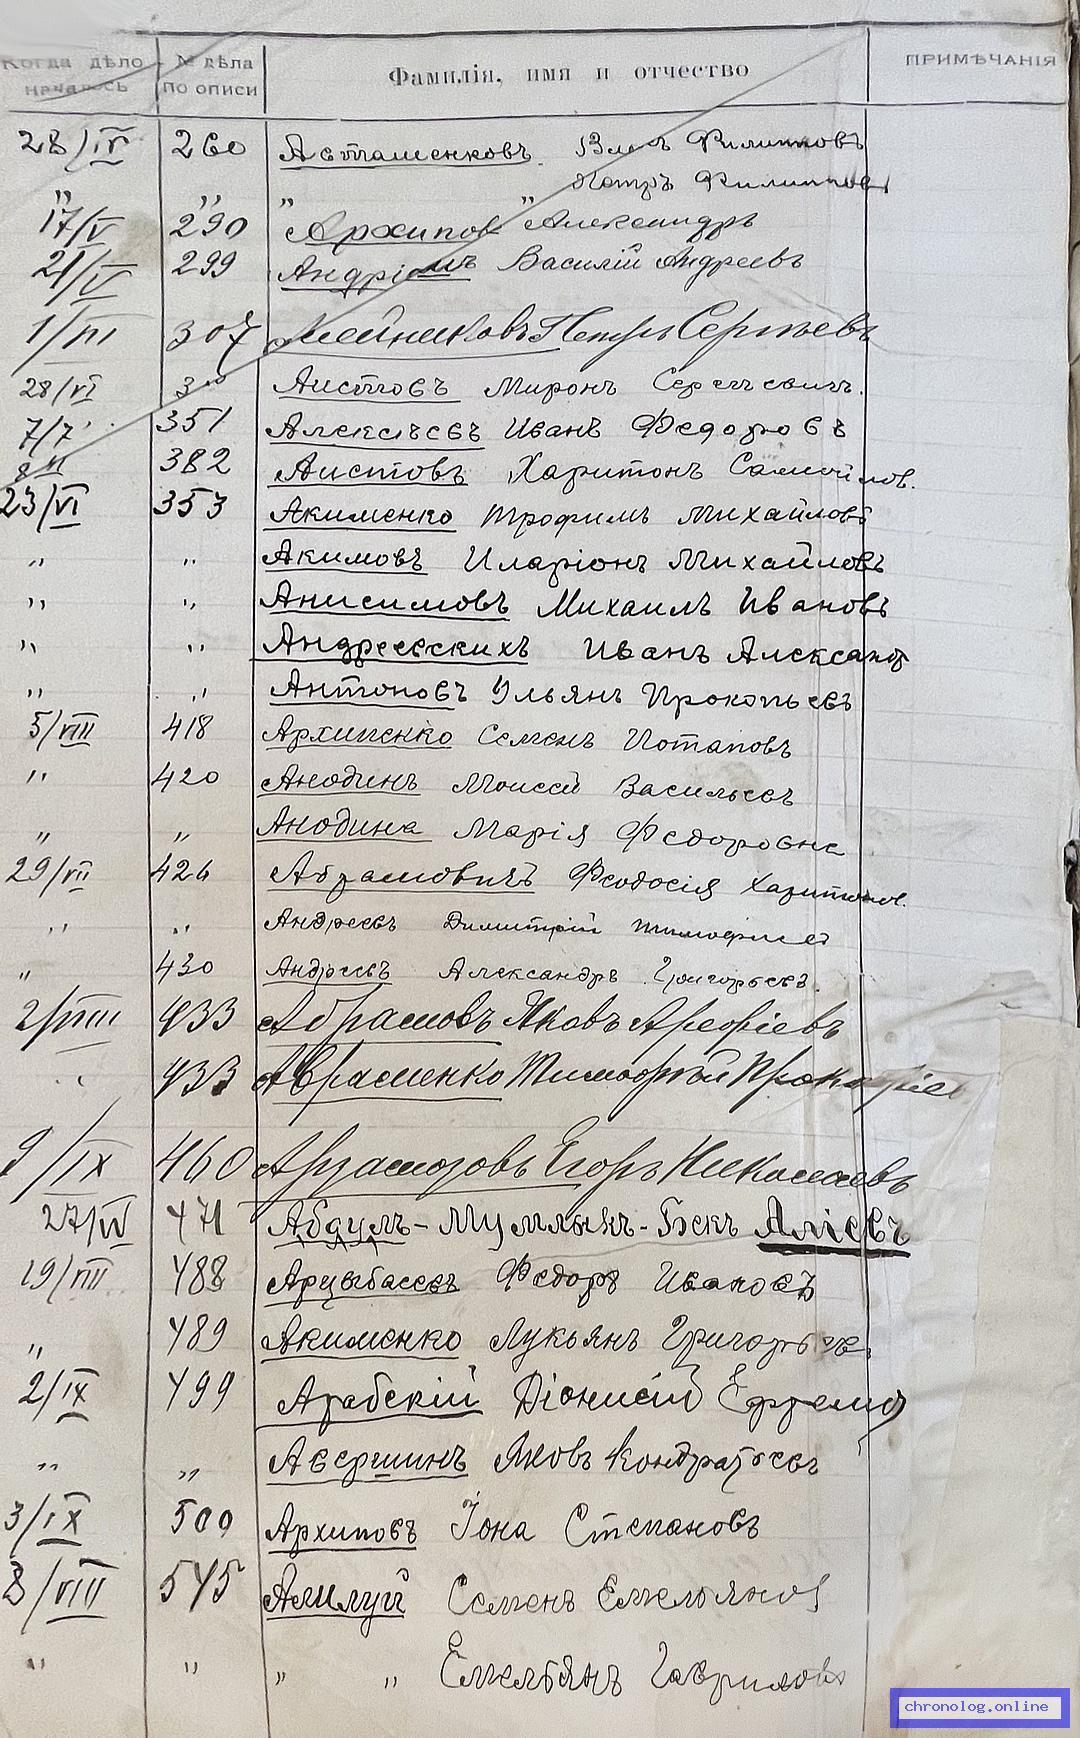 Когда дѣло началось № дѣла по описи Фамилія, имя и отчество ПРИМѢЧАНІЯ
28/IV 260 Асташенковъ Филипповъ
" " " " Петръ Филиппов
17/V 290 Архипов Александръ
21/V 299 Василій Андреевъ
1/III 307 Олейниковъ Петръ Сергѣевъ
28/VI Аистовъ Миронъ Сергѣевичъ.
7/7 351 Алексѣевъ Иванъ Федоровъ
382 Аистовъ Харитонъ Самойлов.
23/VI 353 Акименко Трофимъ Михайловъ
" " Акимовъ Иларіонъ Михайловъ
" " Анисимовъ Михаилъ Ивановъ
" " Андреевскихъ Иванъ Александр
" " Антоновъ Ульянъ Прокопьевъ
5/VIII 418 Архипенко Семенъ Потаповъ
" 420 Анодинъ Моисей Васильевъ
" " Анодина Марія Федоровна
29/VII 426 Абрамовичъ Феодосія Харитонов.
" " Андреевъ Димитрій Тимофеев
" 430 Андреевъ Александръ Григорьевъ.
2/VIII 433 Абрамовъ Яковъ Арефіевъ
" 433 Авраменко Тимофѣй Прокофіев
9/IX 460 Арзамозовъ Егоръ Николаевъ
27/IV 471 Абдулъ - - Бекъ Аліевъ
19/VIII 488 Арцыбасевъ Федоръ Ивановъ
" 489 Акименко Лукьянъ Григорьев.
2/IX 499 Арабскій Діонисій Ефремов
" " Авершинъ Яковъ Кондратьевъ
3/IX 500 Архиповъ Іона Степановъ
8/VIII 545 Амилуй Семенъ Емельянов
" " " " Емельянъ Гавриловъ
chronolog.online